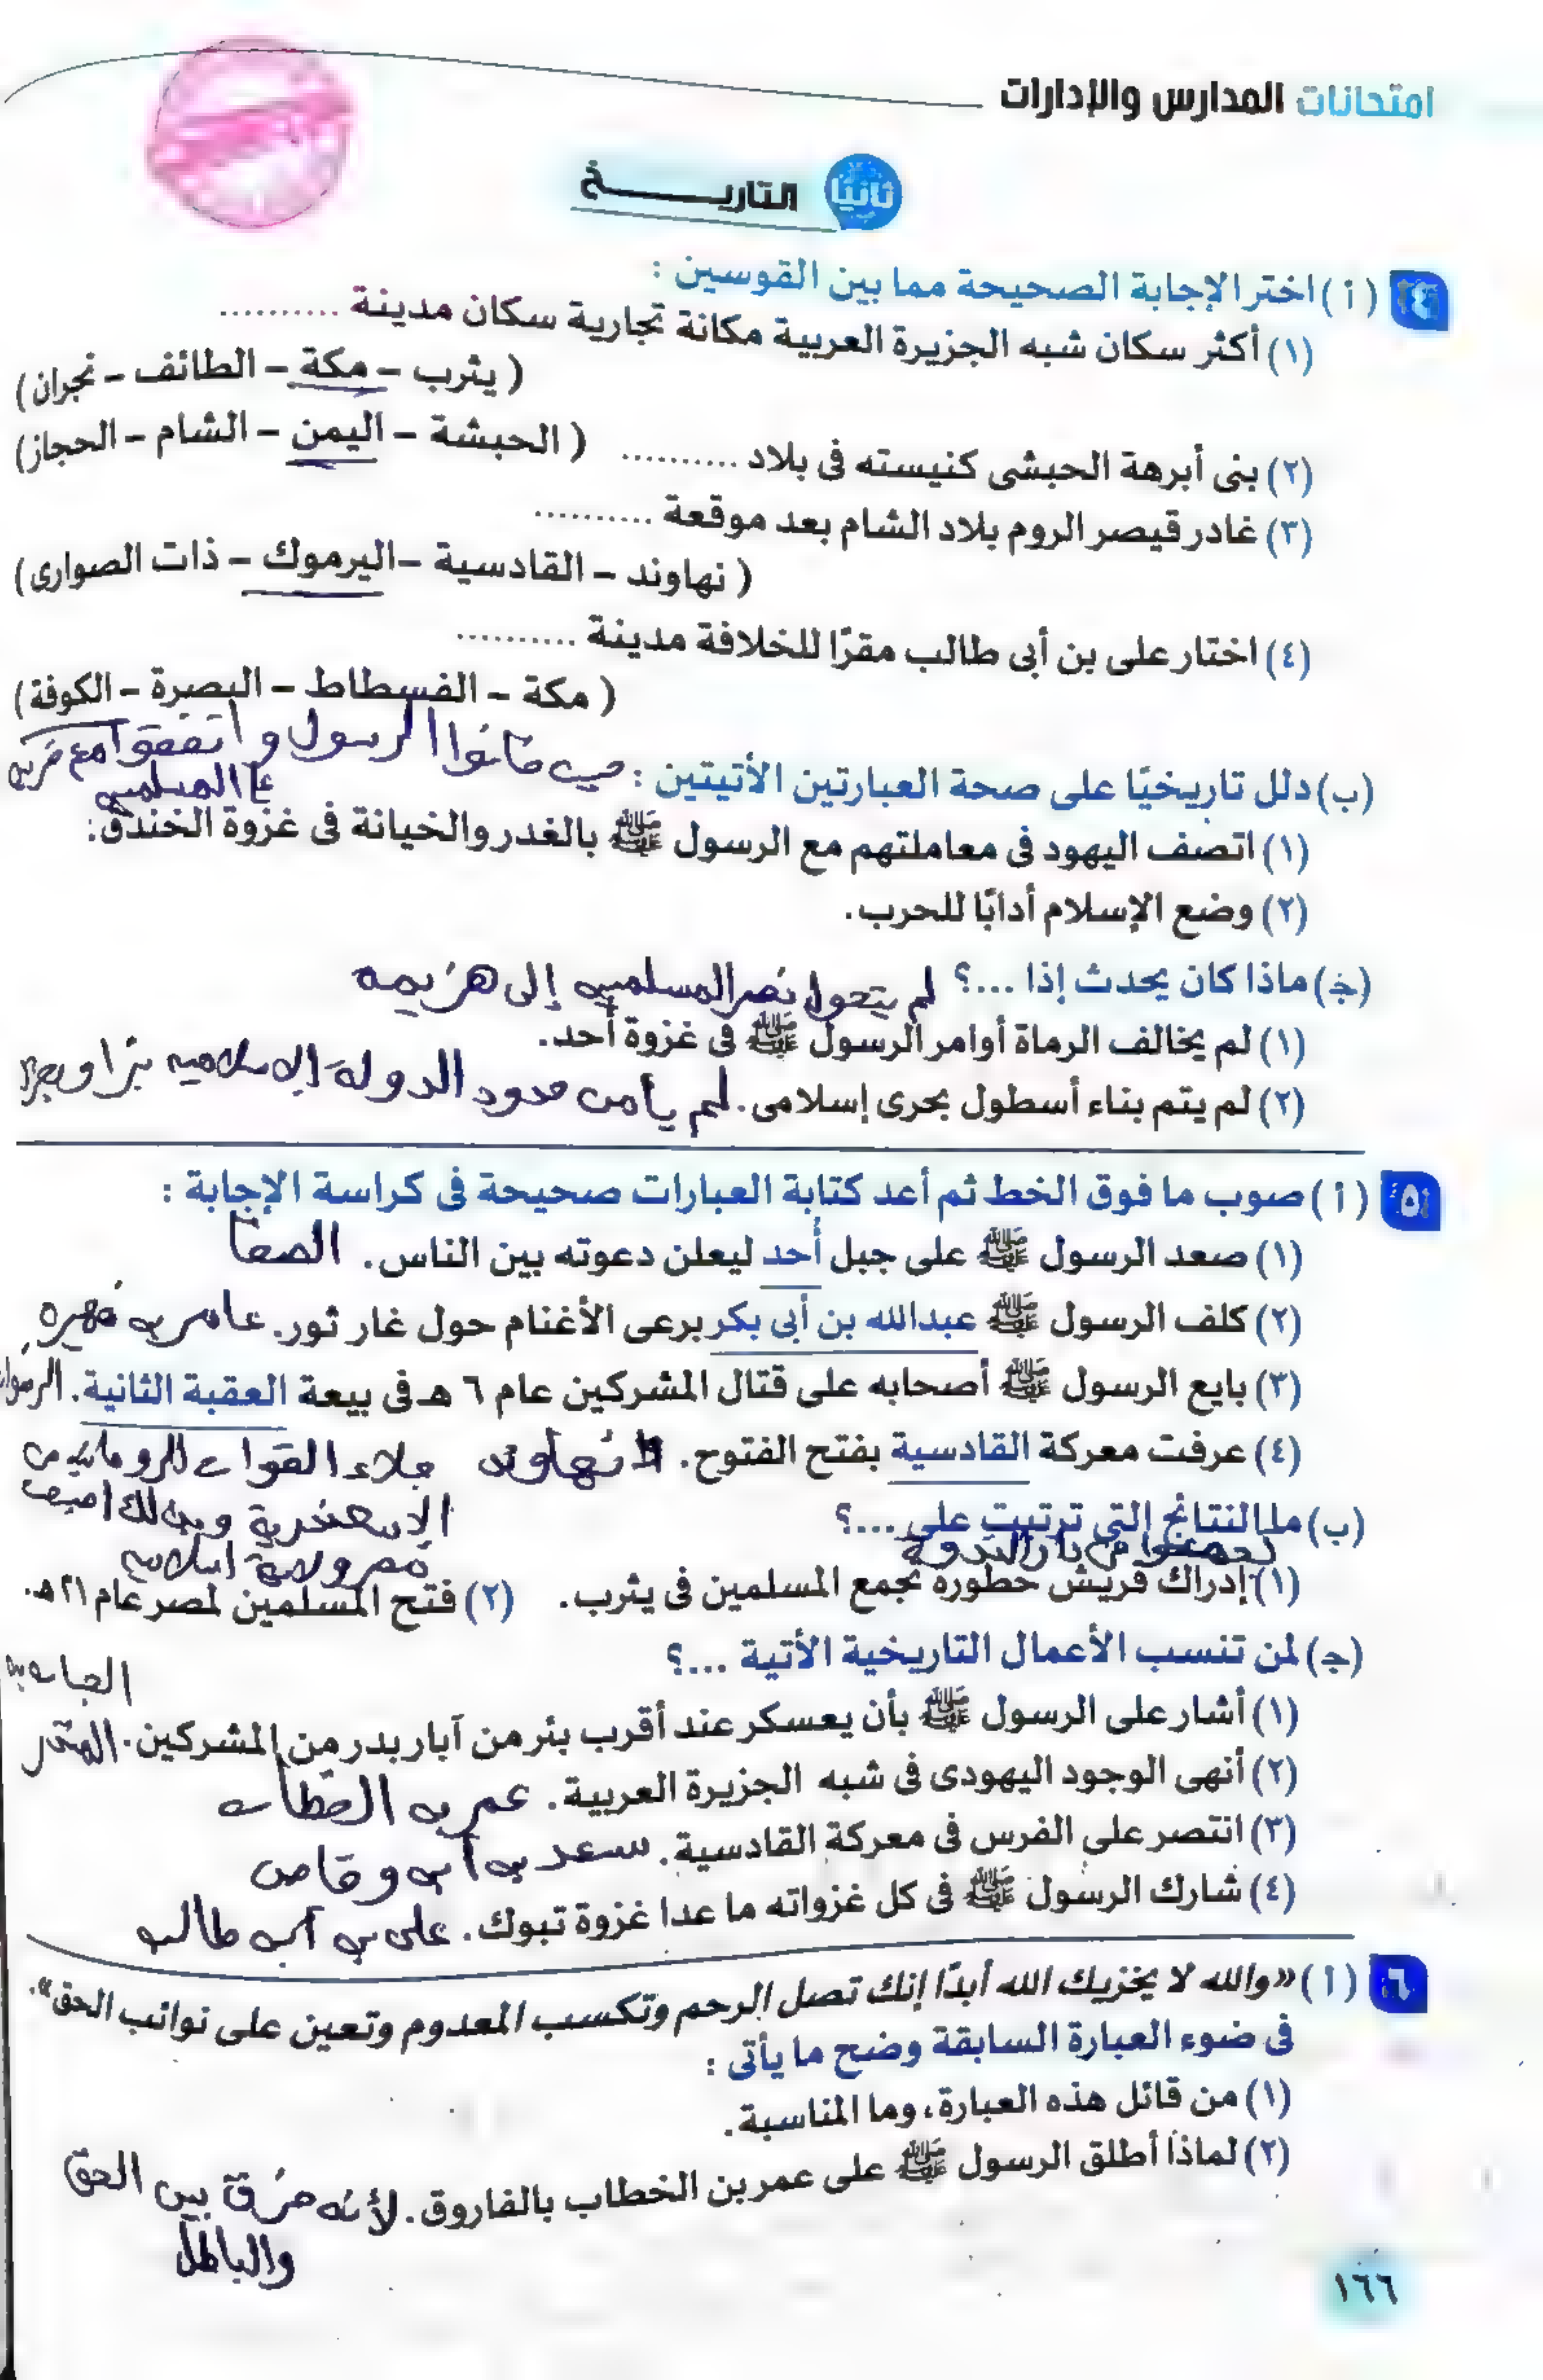 امتحانات المدارس والإدارات
ثانيًا التاريـــــخ
٤ (أ) اختر الإجابة الصحيحة مما بين القوسين :
(١) أكثر سكان شبه الجزيرة العربية مكانة تجارية سكان مدينة ..........
( يثرب - مكة - الطائف - نجران)
(٢) بنى أبرهة الحبشى كنيسته فى بلاد .......... ( الحبشة - اليمن - الشام - الحجاز)
(٣) غادر قيصر الروم بلاد الشام بعد موقعة ..........
( نهاوند - القادسية - اليرموك - ذات الصوارى)
(٤) اختار على بن أبى طالب مقرًا للخلافة مدينة ..........
( مكة - الفسطاط - البصرة - الكوفة)
(ب) دلل تاريخيًا على صحة العبارتين الأتيتين : خانوا الرسول و اتفقوا مع
المسلمين
(١) اتصف اليهود فى معاملتهم مع الرسول ﷺ بالغدر والخيانة فى غزوة الخندق.
(٢) وضع الإسلام أدابًا للحرب.
(ج) ماذا كان يحدث إذا ...؟ لم يتحول نصر المسلمين إلى هزيمه
(١) لم يخالف الرماة أوامر الرسول ﷺ فى غزوة أحد.
(٢) لم يتم بناء أسطول بحرى إسلامى. لم يأمن حدود الدولة الاسلاميه
٥ (أ) صوب ما فوق الخط ثم أعد كتابة العبارات صحيحة فى كراسة الإجابة :
(١) صعد الرسول ﷺ على جبل أُحد ليعلن دعوته بين الناس. الصفا
(٢) كلف الرسول ﷺ عبدالله بن أبى بكر برعى الأغنام حول غار ثور. عامر بن فهيره
(٣) بايع الرسول ﷺ أصحابه على قتال المشركين عام ٦ هـ فى بيعة العقبة الثانية.
(٤) عرفت معركة القادسية بفتح الفتوح. نهاوند جلاء القوات الرومانيه من
الاسكندرية وبذلك اصبحت
(ب) ما النتائج التى ترتبت على ...؟
مصر ولاية اسلاميه
دار الندوة
(١) إدراك قريش خطورة تجمع المسلمين فى يثرب. (٢) فتح المسلمين لمصر عام ٢١هـ.
(ج) لمن تنسب الأعمال التاريخية الأتية ...؟
(١) أشار على الرسول ﷺ بأن يعسكر عند أقرب بئر من آبار بدر من المشركين. المنذر
(٢) أنهى الوجود اليهودى فى شبه الجزيرة العربية. عمر بن الخطاب
(٣) انتصر على الفرس فى معركة القادسية. سعد بن أبى وقاص
(٤) شارك الرسول ﷺ فى كل غزواته ما عدا غزوة تبوك. على بن أبى طالب
٦ (أ) «والله لا يخزيك الله أبدًا إنك تصل الرحم وتكسب المعدوم وتعين على نوائب الحق».
فى ضوء العبارة السابقة وضح ما يأتى :
(١) من قائل هذه العبارة، وما المناسبة.
(٢) لماذا أطلق الرسول ﷺ على عمر بن الخطاب بالفاروق. لأنه فرق بين الحق
والباطل
١٦٦